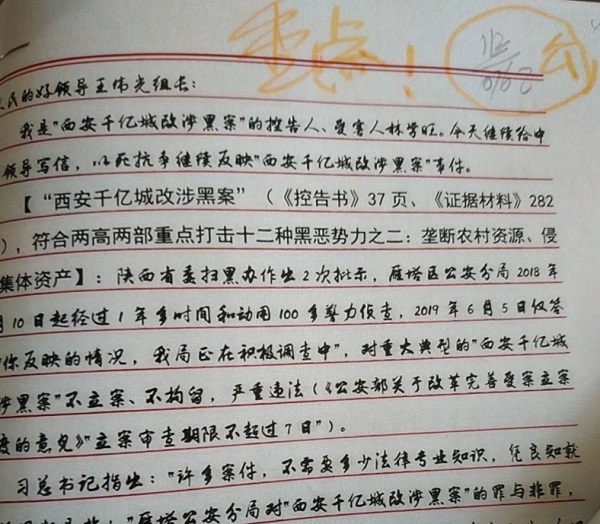 重点!
公
人民的好领导王伟光组长:
我是"西安千亿城改涉黑案"的控告人、受害人林学旺。今天继续给中
领导写信,以死抗争继续反映"西安千亿城改涉黑案"事件。
【"西安千亿城改涉黑案"(《控告书》37页、《证据材料》282
),符合两高两部重点打击十二种黑恶势力之二:垄断农村资源、侵
集体资产】:陕西省委扫黑办作出2次批示,雁塔区公安分局2018年
月10日起经过1年多时间和动用100多警力侦查,2019年6月5日仅答
"你反映的情况,我局正在积极调查中",对重大典型的"西安千亿城
涉黑案"不立案、不拘留,严重违法(《公安部关于改革完善受案立案
度的意见》"立案审查期限不超过7日")。
习总书记指出:"许多案件,不需要多少法律专业知识,凭良知就
"雁塔公安分局对"西安千亿城改涉黑案"的罪与非罪,